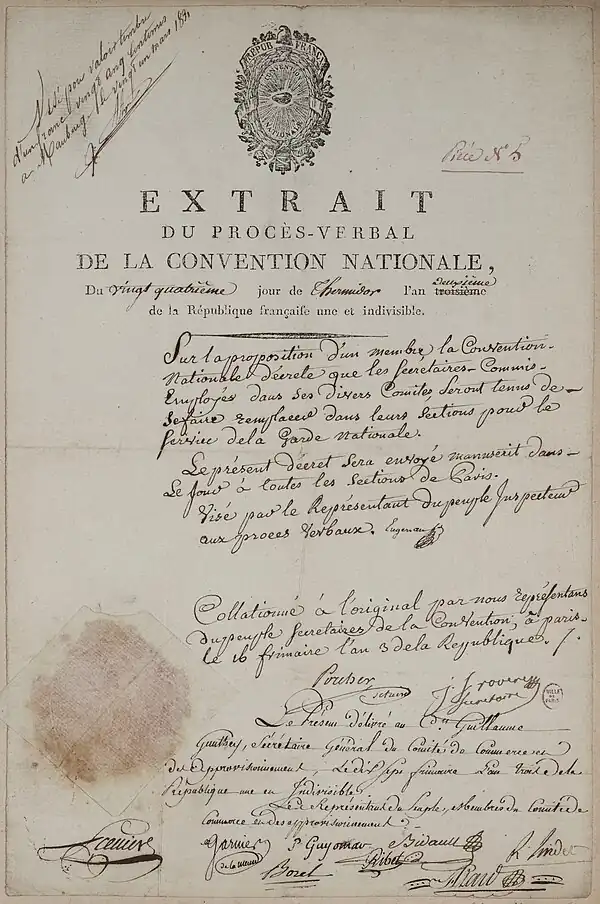 Visé pour valoir timbre
d'un franc vingt cinq centimes
a Maubeuge le vingt un mars 18
REPUB FRANÇ
CONVENTION
NATIONALE
Pièce N° 5
EXTRAIT
DU PROCÈS-VERBAL
DE LA CONVENTION NATIONALE,
Deuxième
Du vingt quatrième jour de Thermidor l'an troisième
de la République françaiſe une et indivisible.
Sur la proposition d'un membre, la Convention-
Nationale décrete que les Secretaires-Commis-
Employés dans ses divers Comités, Seront tenus de-
se faire remplacer dans leurs Sections pour le
Service de la Garde Nationale.
Le présent décret Sera envoyé manuscrit dans-
Le Jour à toutes les Sections de Paris.
Visé par le Représentant du peuple Inspecteur
aux procès Verbaux.
Collationné à l'original par nous représentans
du peuple Secretaires de la Convention, à paris-
le 16 frimaire l'an 3 de la République.
Porcher
J. S. Rovere
Secretaire
VILLE DE PARIS
Le Présent délivré au Cen. Guillaume
Secrétaire Général du Comité de Commerce et
des approvisionnement, Le dix Sept frimaire L'an trois de la
République une et Indivisible
Les Représentans du Peuple, Membres du Comité de
Commerce et des approvisionnement
Garnier P. Guyomar Bidault R. Lindet
Boret Ribet